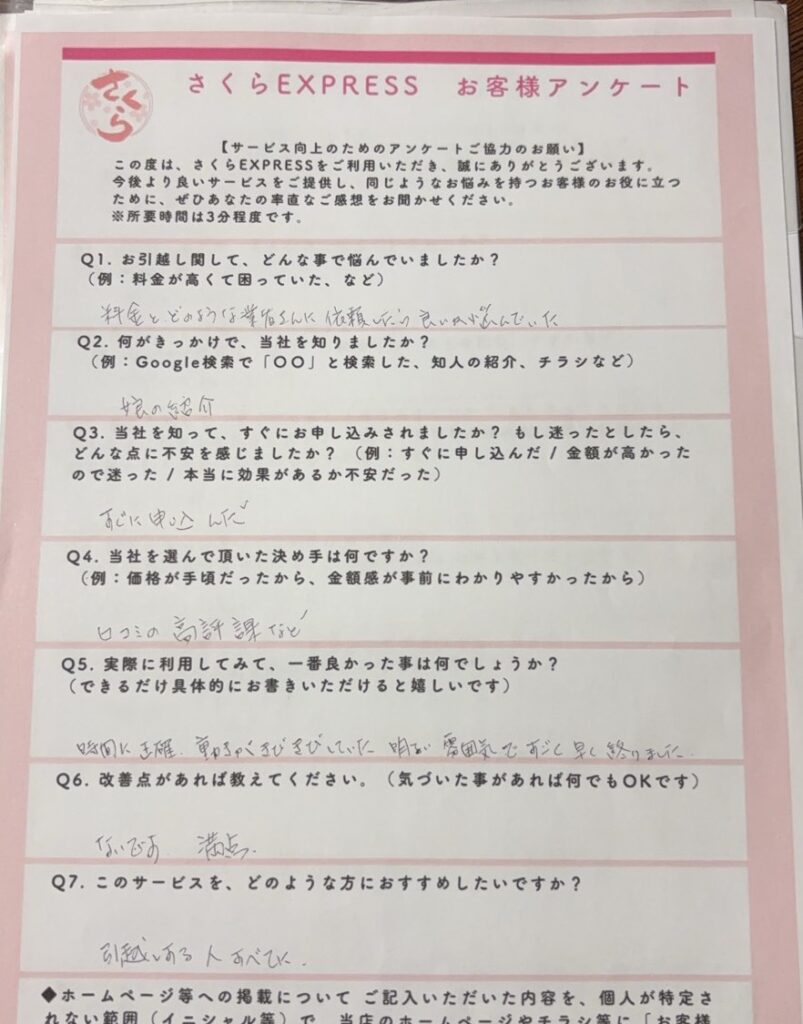 さくら
さくらEXPRESS お客様アンケート
【サービス向上のためのアンケートご協力のお願い】
この度は、さくらEXPRESSをご利用いただき、誠にありがとうございます。
今後より良いサービスをご提供し、同じようなお悩みを持つお客様のお役に立つ
ために、ぜひあなたの率直なご感想をお聞かせください。
※所要時間は3分程度です。
Q1. お引越し関して、どんな事で悩んでいましたか？
（例：料金が高くて困っていた、など）
料金と どのような業者さんに 依頼したら 良いか悩んでいた
Q2. 何がきっかけで、当社を知りましたか？
（例：Google検索で「〇〇」と検索した、知人の紹介、チラシなど）
娘の紹介
Q3. 当社を知って、すぐにお申し込みされましたか？ もし迷ったとしたら、
どんな点に不安を感じましたか？（例：すぐに申し込んだ / 金額が高かった
ので迷った / 本当に効果があるか不安だった）
すぐに申し込んだ
Q4. 当社を選んで頂いた決め手は何ですか？
（例：価格が手頃だったから、金額感が事前にわかりやすかったから）
口コミの 高評課など
Q5. 実際に利用してみて、一番良かった事は何でしょうか？
（できるだけ具体的にお書きいただけると嬉しいです）
時間に正確. きびきびしていた 明るい 雰囲気で すごく 早く 終りました.
Q6. 改善点があれば教えてください。（気づいた事があれば何でもOKです）
ないです. 満点.
Q7. このサービスを、どのような方におすすめしたいですか？
引越しする 人 すべてに.
◆ホームページ等への掲載について ご記入いただいた内容を、個人が特定さ
れない範囲（イニシャル等）で、当店のホームページやチラシ等に「お客様